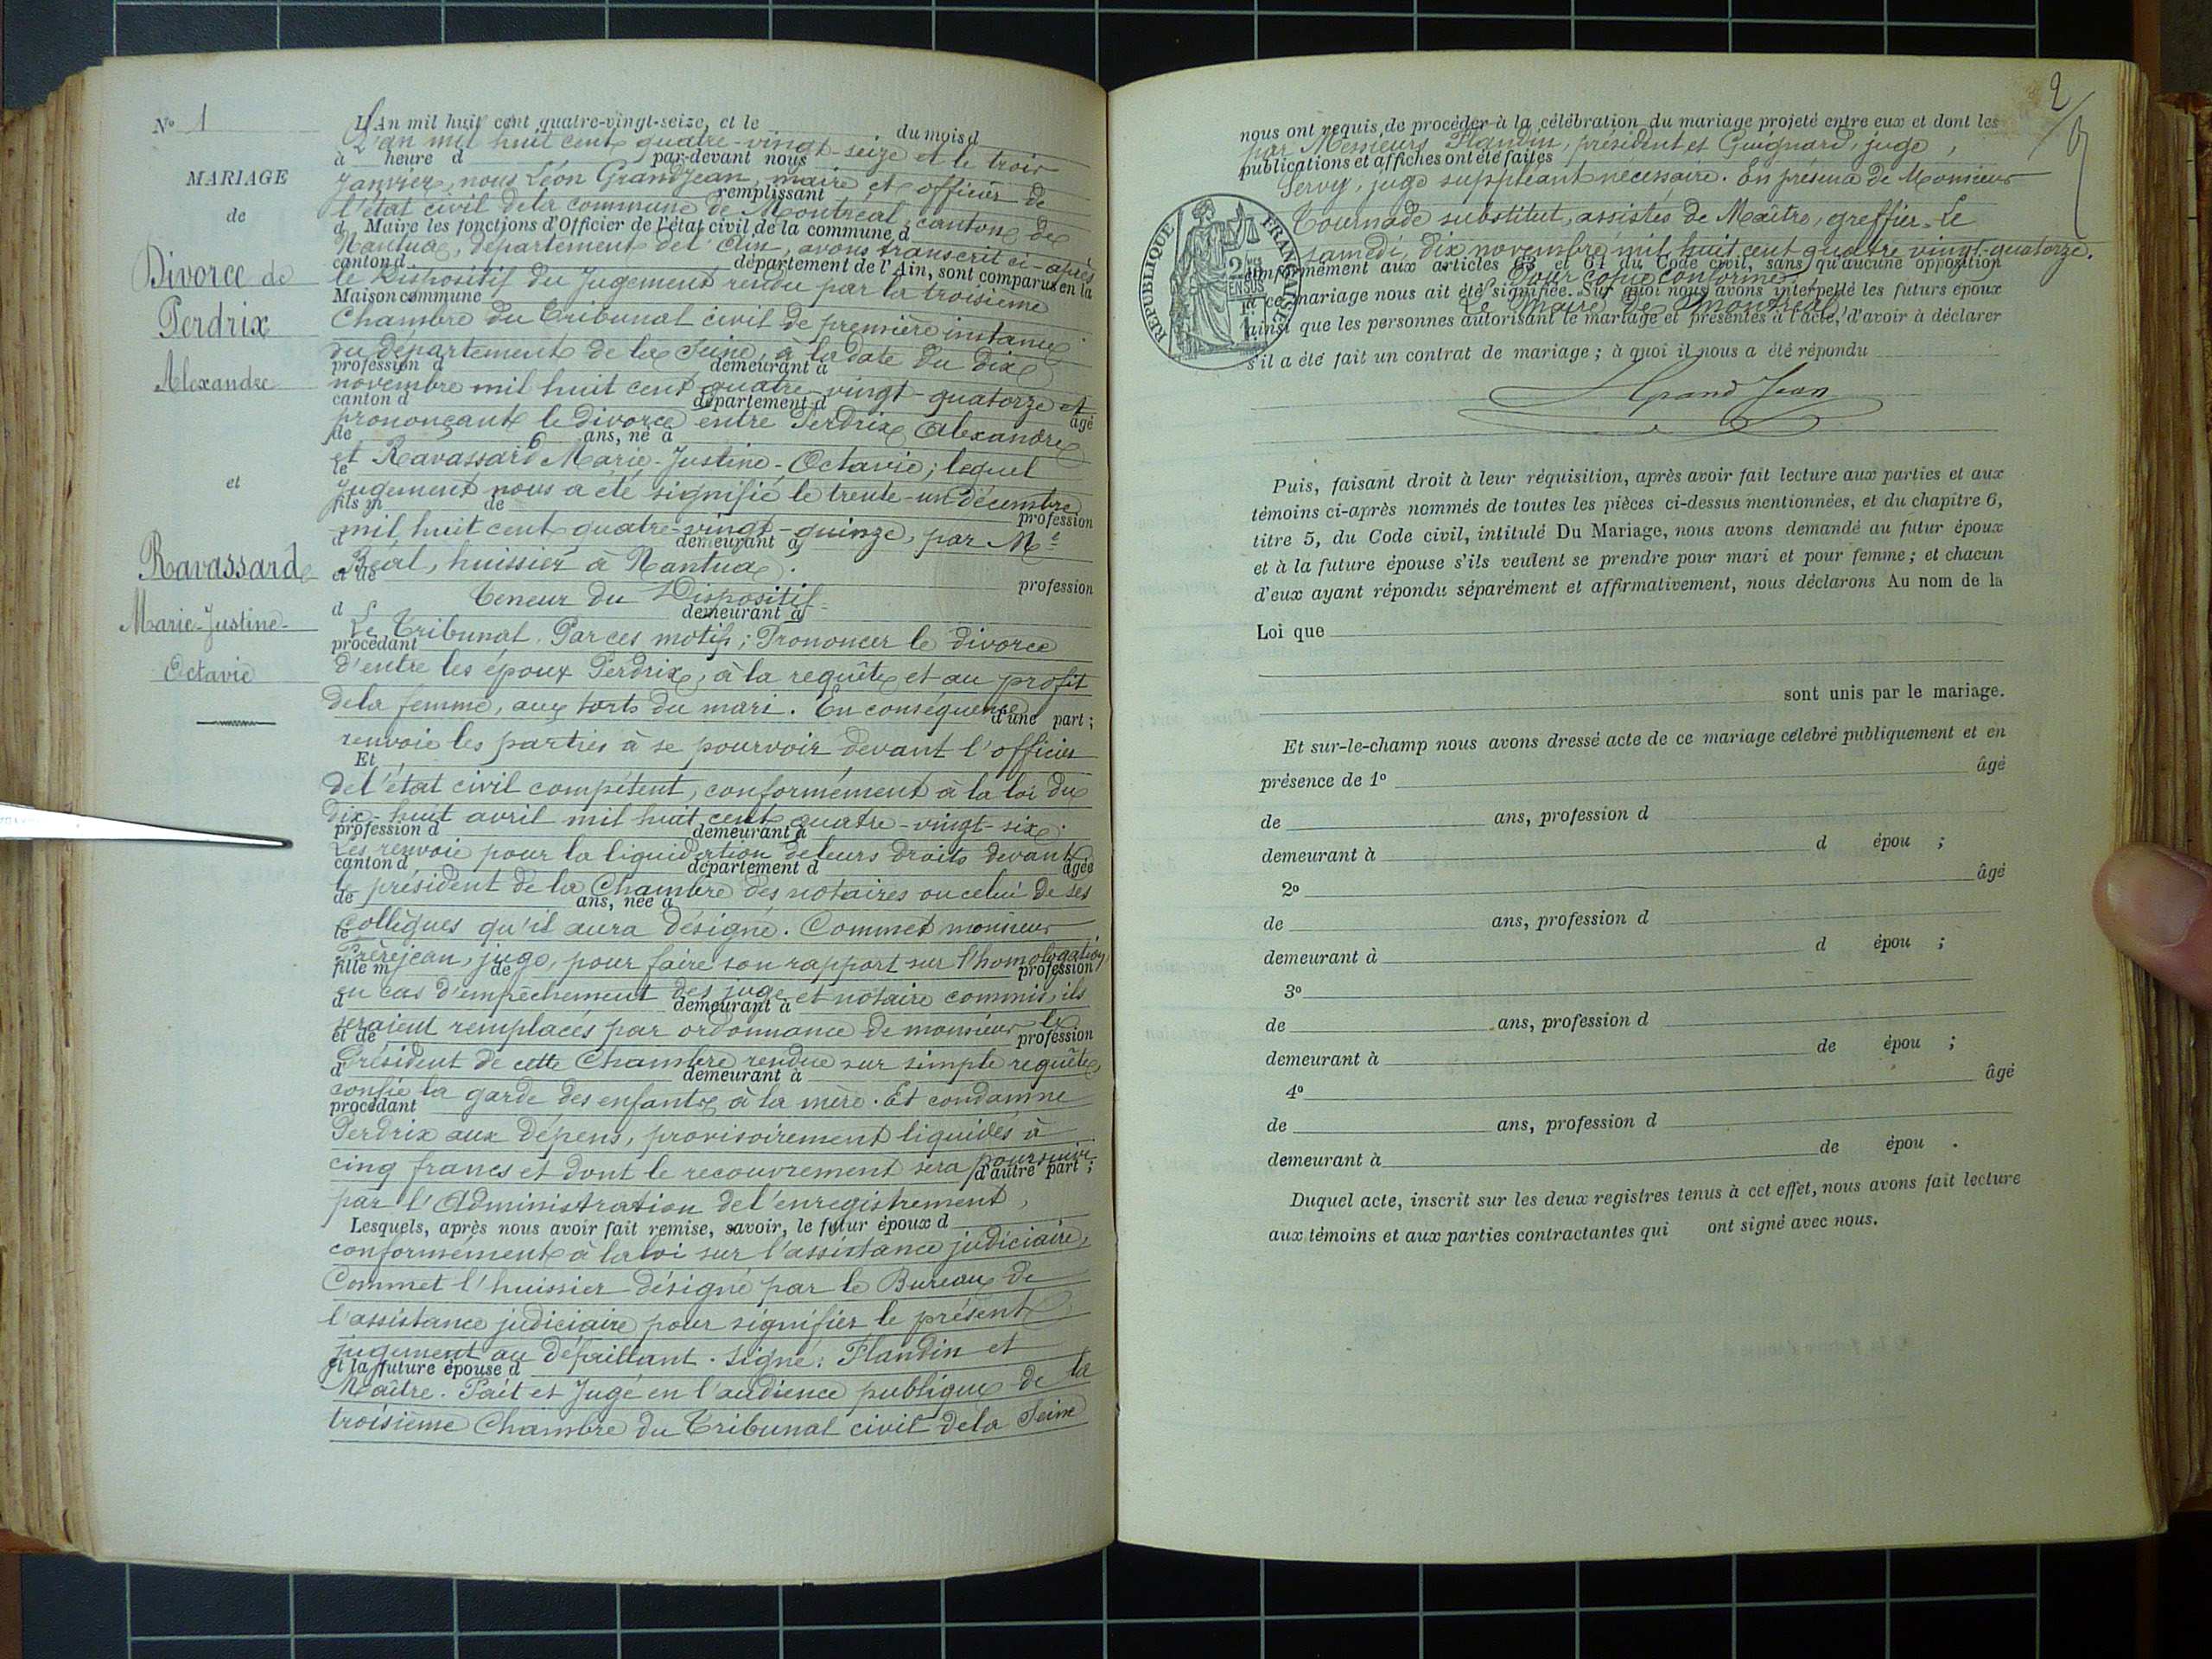 N° 1
MARIAGE
de
Divorce de
Perdrix
Alexandre
et
Ravassard
Marie-Justine-
Octavie
L'An mil huit cent quatre-vingt-seize, et le du mois d
L'an mil huit cent quatre-vingt-seize et le trois
à heure d par-devant nous
Janvier, nous Léon Grandjean, maire et officier de
remplissant
l'état civil de la commune de Montréal, canton de
d Maire les fonctions d'Officier de l'état civil de la commune d
Nantua, département de l'Ain, avons transcrit ci-après
canton d département de l'Ain, sont comparus en la
le Dispositif du Jugement rendu par la troisième
Maison commune
Chambre du Tribunal civil de première instance
du département de la Seine, à la date du Dix
profession d demeurant à
novembre mil huit cent quatre-vingt-quatorze et
canton d département d âgé
prononçant le divorce entre Perdrix Alexandre
de ans, né à
et Ravassard Marie-Justine-Octavie; lequel
le
Jugement nous a été signifié le trente-un Décembre
fils m de profession
mil huit cent quatre-vingt-quinze, par Me
d demeurant à
huissier à Nantua.
et de profession
Teneur du Dispositif
d demeurant à
Le Tribunal. Par ces motifs; Prononcer le divorce
procédant
d'entre les époux Perdrix, à la requête et au profit
de la femme, aux torts du mari. En conséquence
d'une part;
renvoie les parties à se pourvoir devant l'officier
Et
de l'état civil compétent, conformément à la loi du
dix-huit avril mil huit cent quatre-vingt-six.
profession d demeurant à
Les renvoie pour la liquidation de leurs droits devant
canton d département d âgée
le président de la Chambre des notaires ou celui de ses
de ans, née à
collègues qu'il aura désigné. Commet monsieur
le
Frèrejean, juge, pour faire son rapport sur l'homologation
fille m de profession
en cas d'empêchement des juge et notaire commis, ils
d demeurant à
seraient remplacés par ordonnance de monsieur le
et de profession
Président de cette Chambre rendue sur simple requête,
d demeurant à
confie la garde des enfants à la mère. Et condamne
procédant
Perdrix aux dépens, provisoirement liquidés à
cinq francs et dont le recouvrement sera poursuivi
d'autre part;
par l'Administration de l'enregistrement,
Lesquels, après nous avoir fait remise, savoir, le futur époux d
conformément à la loi sur l'assistance judiciaire,
Commet l'huissier désigné par le Bureau de
l'assistance judiciaire pour signifier le présent
jugement au défaillant. Signé: Flandin et
et la future épouse d
Maître. Fait et Jugé en l'audience publique de la
troisième Chambre du Tribunal civil de la Seine
2
nous ont requis de procéder à la célébration du mariage projeté entre eux et dont les
par Messieurs Flandin, président et Guignard, juge,
publications et affiches ont été faites
Servy, juge suppléant nécessaire. En présence de Monsieur
Tournade substitut, assistés de Maître, greffier. Le
samedi, dix novembre mil huit cent quatre vingt-quatorze.
conformément aux articles 63 et 64 du Code civil, sans qu'aucune opposition
Pour copie conforme:
à ce mariage nous ait été signifiée. Sur quoi nous avons interpellé les futurs époux
Le Maire de Montréal,
ainsi que les personnes autorisant le mariage et présentes à l'acte, d'avoir à déclarer
s'il a été fait un contrat de mariage; à quoi il nous a été répondu
RÉPUBLIQUE FRANÇAISE
GrandJean
Puis, faisant droit à leur réquisition, après avoir fait lecture aux parties et aux
témoins ci-après nommés de toutes les pièces ci-dessus mentionnées, et du chapitre 6,
titre 5, du Code civil, intitulé Du Mariage, nous avons demandé au futur époux
et à la future épouse s'ils veulent se prendre pour mari et pour femme; et chacun
d'eux ayant répondu séparément et affirmativement, nous déclarons Au nom de la
Loi que
sont unis par le mariage.
Et sur-le-champ nous avons dressé acte de ce mariage célébré publiquement et en
présence de 1° âgé
de ans, profession d
demeurant à d épou ;
2° âgé
de ans, profession d
demeurant à d épou ;
3°
de ans, profession d
demeurant à de épou ;
4° âgé
de ans, profession d
demeurant à de épou .
Duquel acte, inscrit sur les deux registres tenus à cet effet, nous avons fait lecture
aux témoins et aux parties contractantes qui ont signé avec nous.